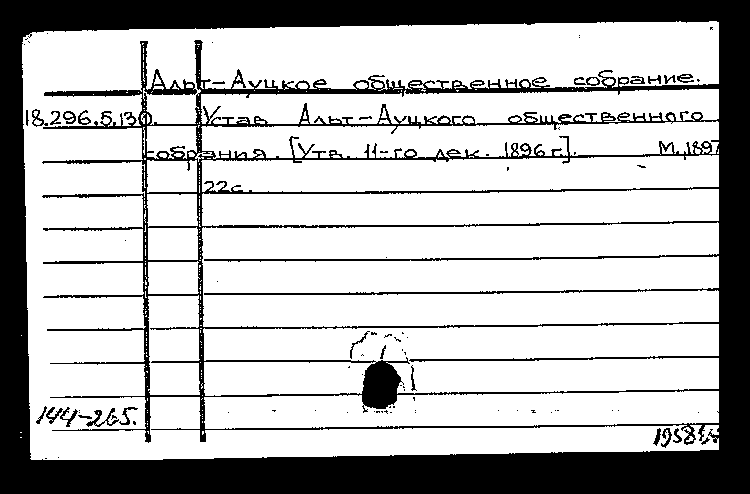 Альт-Ауцкое общественное собрание.
18.296.5.130. Устав Альт-Ауцкого общественного
собрания. [Утв. 11-го дек. 1896 г.]. М., 1897
22с.
144-265.